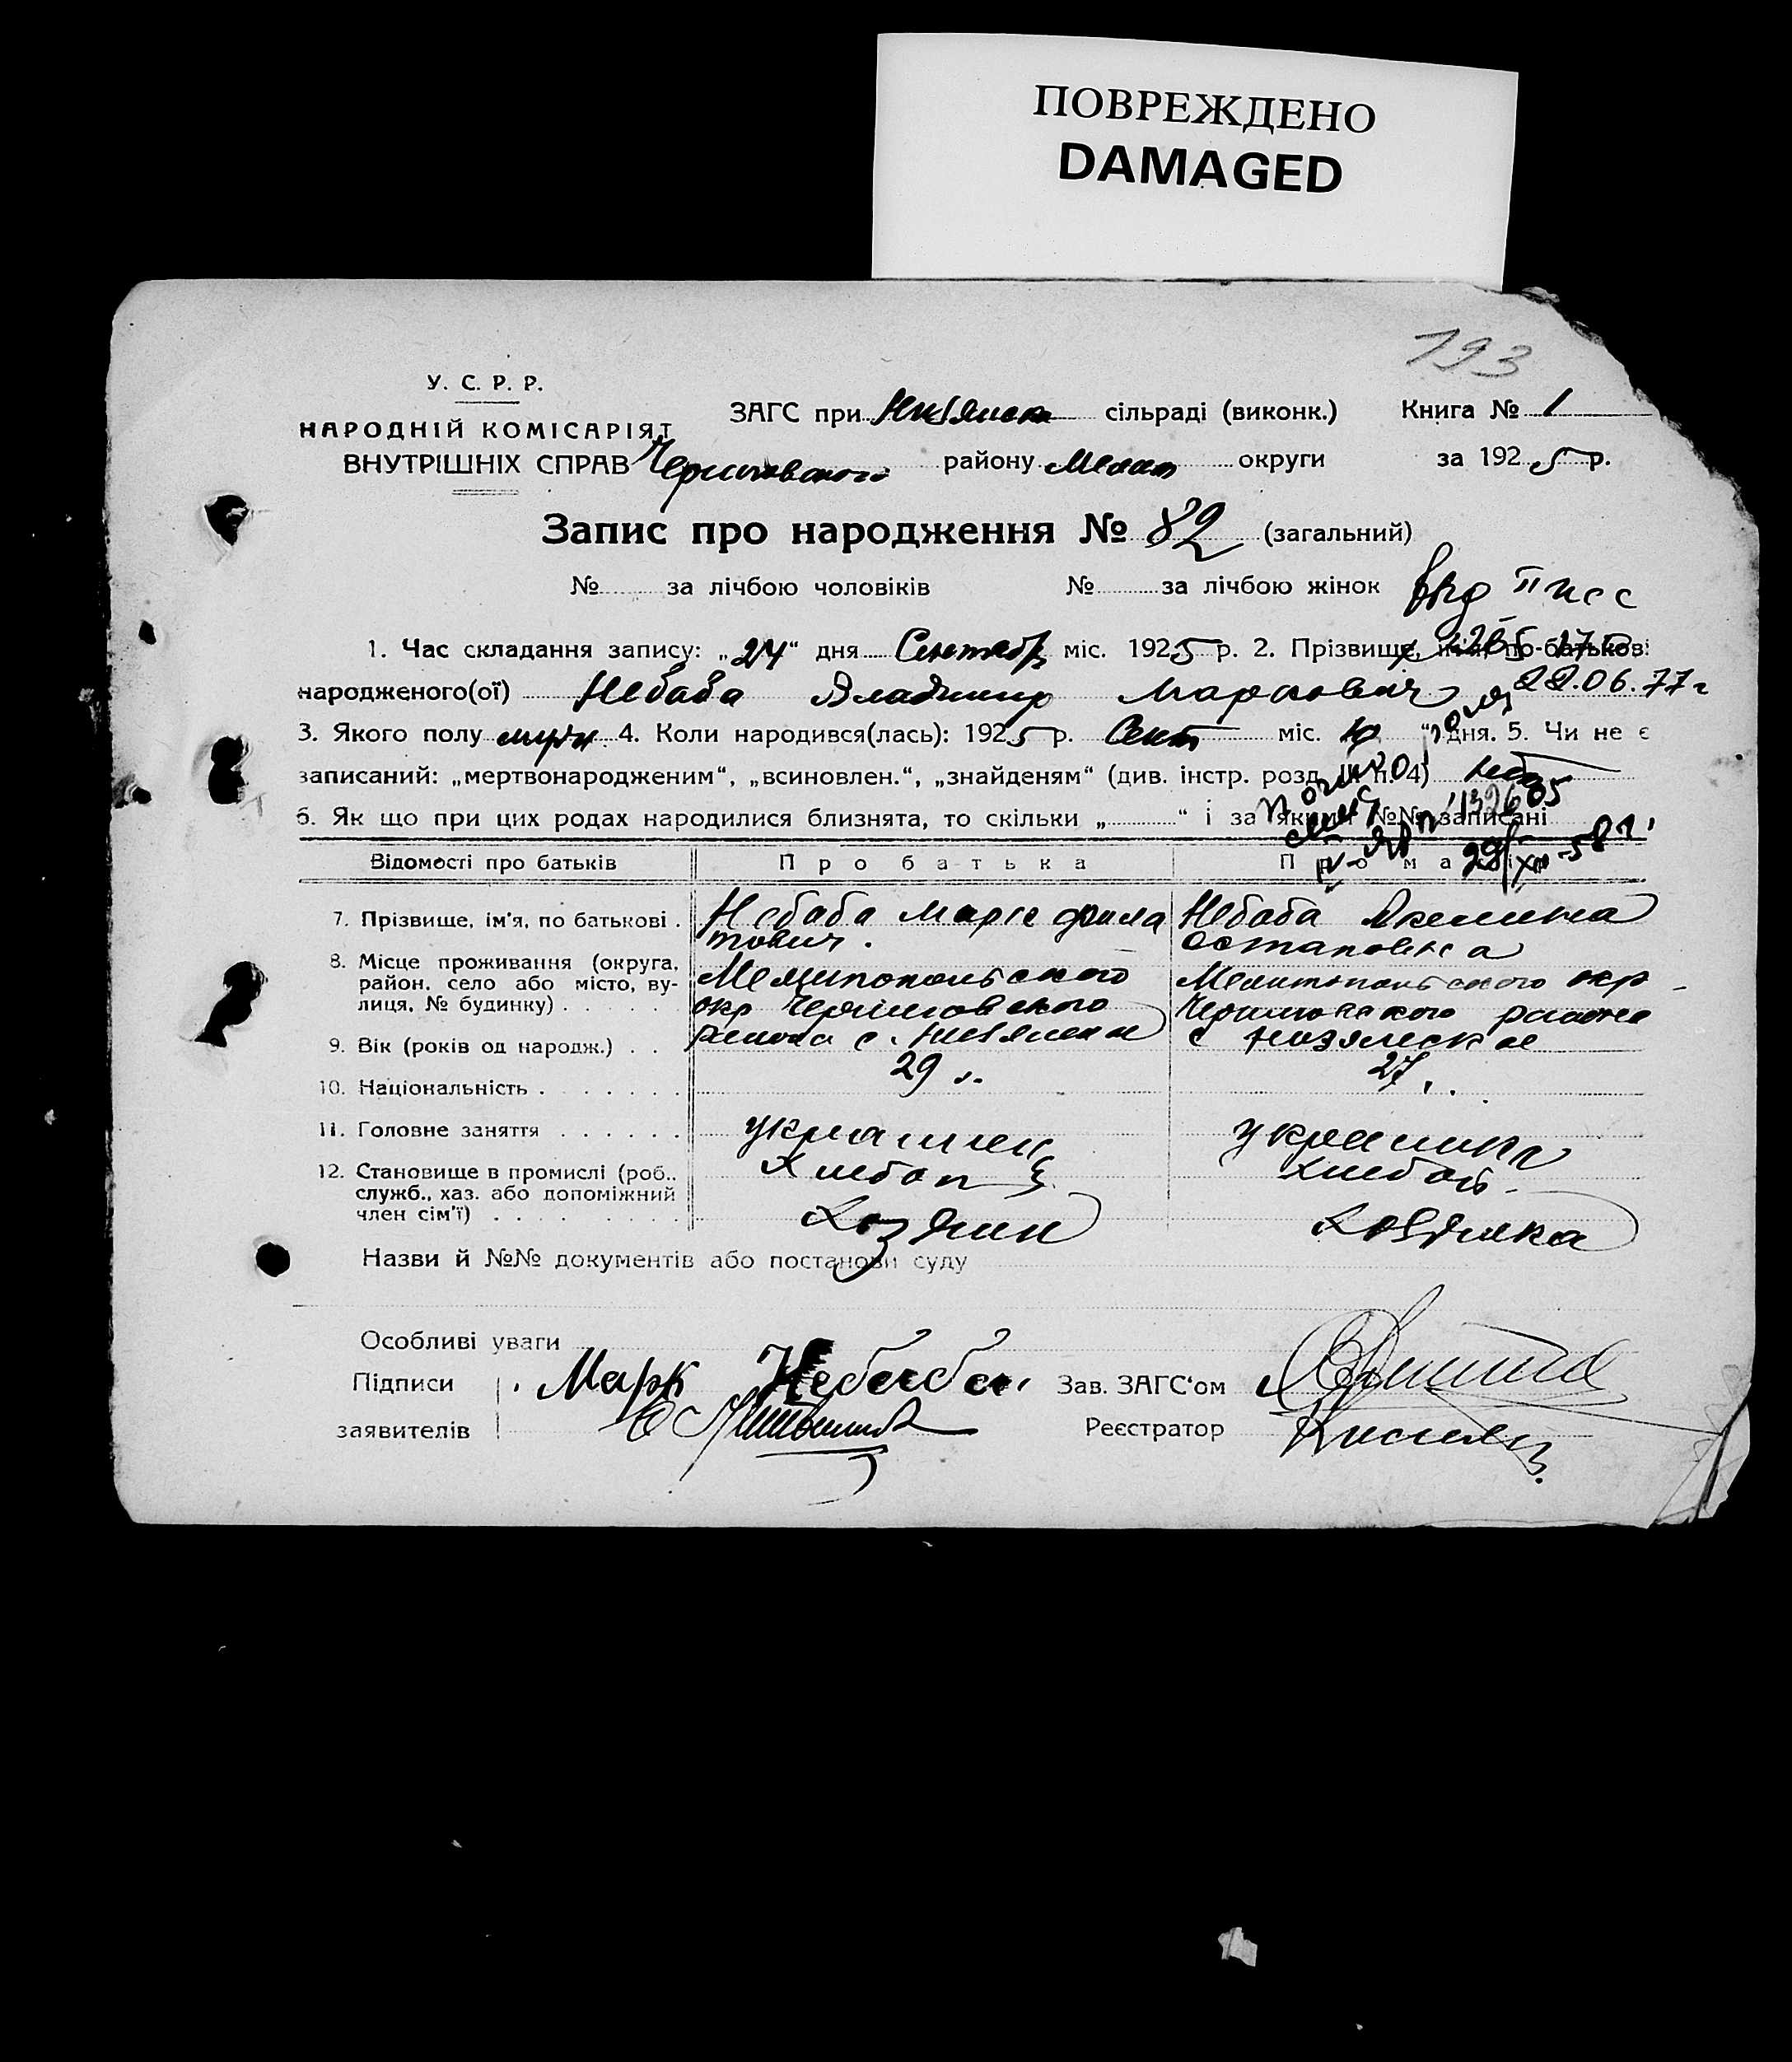 ПОВРЕЖДЕНО
DAMAGED
193
У. С. Р. Р.
НАРОДНІЙ КОМІСАРІЯТ
ВНУТРІШНІХ СПРАВ
ЗАГС при сільраді (виконк.) Книга № 1
Черниговского району Мелит округи за 1925 р.
Запис про народження № 82 (загальний)
№ за лічбою чоловіків № за лічбою жінок
1. Час складання запису: „24“ дня Сентябр міс. 1925 р. 2. Прізвище, ім'я, по-батькові
народженого(ої) Небаба Владимир Маркович
22.06.77 г
3. Якого полу муж. 4. Коли народився(лась): 1925 р. Сент міс. 10 „ дня. 5. Чи не є
записаний: „мертвонародженим“, „всиновлен.“, „знайденям“ (див. інстр. розд. III п. 4) нет
6. Як що при цих родах народилися близнята, то скільки „ “ і за якими №№ записані
Відомості про батьків Про батька Про матір
7. Прізвище, ім'я, по батькові . Небаба Марк Фила
тович. Небаба Акелина
Остаповна
8. Місце проживання (округа, район, село або місто, ву-
лиця, № будинку) . . . . . . Мелитопольского
окр Черниговского
района с. Мелитопольского окр
Черниговского района
с Низянское
9. Вік (років од народж.) . . 29 27
10. Національність . . . . . . . украинец украинка
11. Головне заняття . . . . . . Хлебоп Хлебоп
12. Становище в промислі (роб.,
служб., хаз. або допоміжний
член сім'ї) . . . . . . . . . Хозяин Хозяйка
Назви й №№ документів або постанови суду
Особливі уваги
Підписи Марк Небаба Зав. ЗАГС‘ом
заявителів Реєстратор